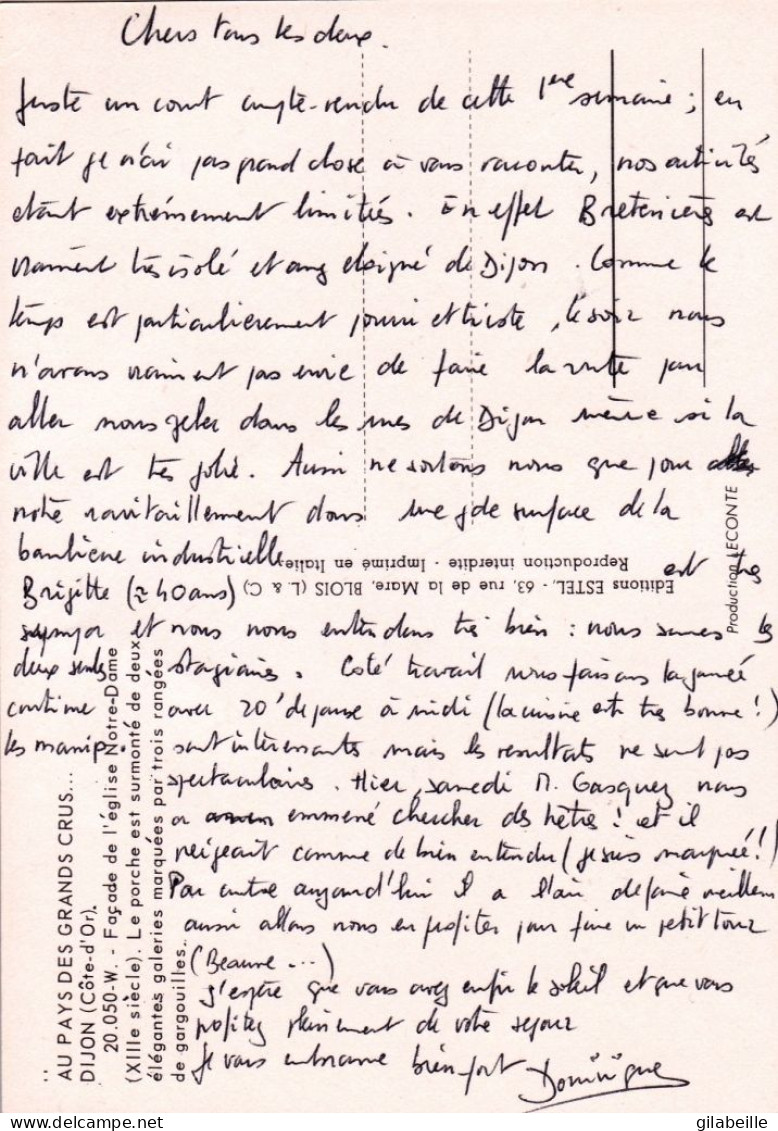 Chers tous les deux.
Juste un court compte-rendu de cette 1ère semaine ; en
fait je n'ai pas grand chose à vous raconter, nos activités
étant extrêmement limitées. En effet Bretenières est
vraiment très isolé et assez éloigné de Dijon. Comme le
temps est particulièrement pourri et triste, le soir nous
n'avons vraiment pas envie de faire la route pour
aller nous geler dans les rues de Dijon même si la
ville est très jolie. Aussi ne sortons nous que pour
notre ravitaillement dans une gde surface de la
banlieue industrielle.
Brigitte (≈ 40 ans) est très
sympa et nous nous entendons très bien : nous sommes les
deux seules stagiaires. Coté travail nous faisons la journée
continue avec 20' de pause à midi (la cuisine est très bonne !)
les manip. sont intéressantes mais les résultats ne sont pas
spectaculaires. Hier, samedi M. Gasquez nous
a emmené chercher des hêtres ! et il
neigeait comme de bien entendu (je suis marquée !)
Par contre aujourd'hui il a l'air de faire meilleur
aussi allons nous en profiter pour faire un petit tour
(Beaune ...)
J'espère que vous avez enfin le soleil et que vous
profitez pleinement de votre séjour
Je vous embrasse bien fort Dominique
Editions ESTEL, - 63, rue de la Mare, BLOIS (L. & C)
Reproduction interdite - Imprimé en Italie
Production LECONTE
AU PAYS DES GRANDS CRUS...
DIJON (Côte-d'Or).
20.050-W. - Façade de l'église Notre-Dame
(XIIIe siècle). Le porche est surmonté de deux
élégantes galeries marquées par trois rangées
de gargouilles.
gilabeille